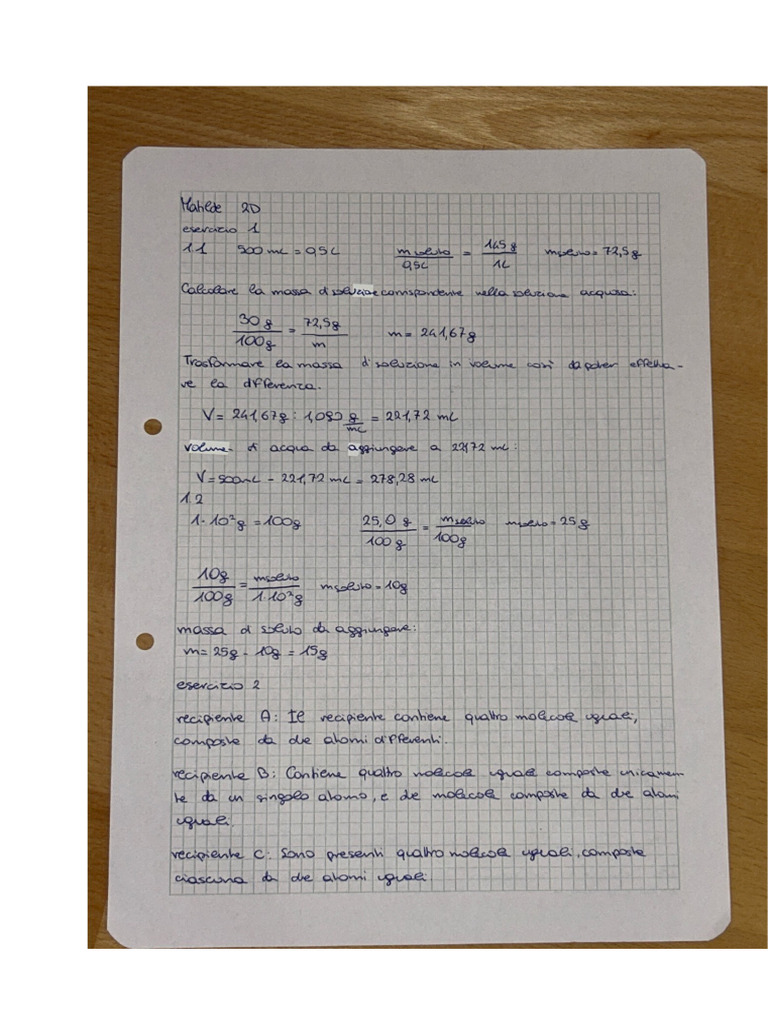 Matilde 2D
esercizio 1
1.1 500 mL = 0,5L m soluto / 0,5L = 145 g / 1L msoluto = 72,5g
Calcolare la massa di soluzione corrispondente nella soluzione acquosa:
30 g / 100g = 72,5g / m m = 241,67g
Trasformare la massa di soluzione in volume così da poter effettua-
re la differenza.
V = 241,67g : 1,090 g/mL = 221,72 mL
volume di acqua da aggiungere a 221,72 mL:
V = 500mL - 221,72 mL = 278,28 mL
1.2
1·10²g = 100g 25,0 g / 100 g = msoluto / 100g msoluto = 25g
10g / 100g = msoluto / 1·10²g msoluto = 10g
massa di soluto da aggiungere:
m = 25g - 10g = 15g
esercizio 2
recipiente A: Il recipiente contiene quattro molecole uguali,
composte da due atomi differenti.
recipiente B: Contiene quattro molecole uguali composte unicamen
te da un singolo atomo, e due molecole composte da due atomi
uguali.
recipiente C: Sono presenti quattro molecole uguali, composte
ciascuna da due atomi uguali.